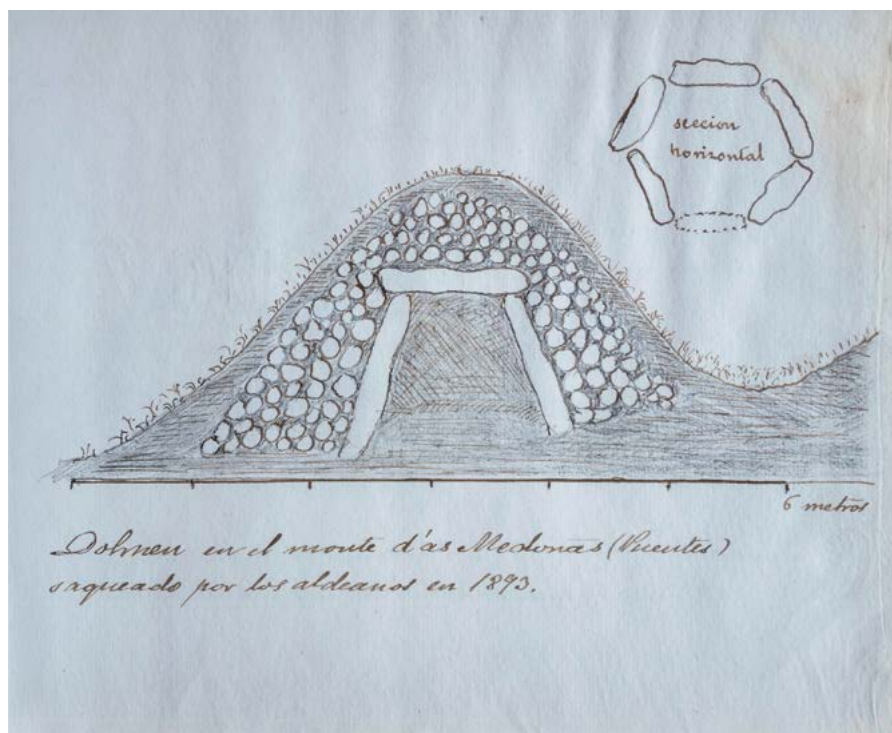 seccion
horizontal
6 metros
Dolmen en el monte d'as Medonas (Puentes)
saqueado por los aldeanos en 1893.